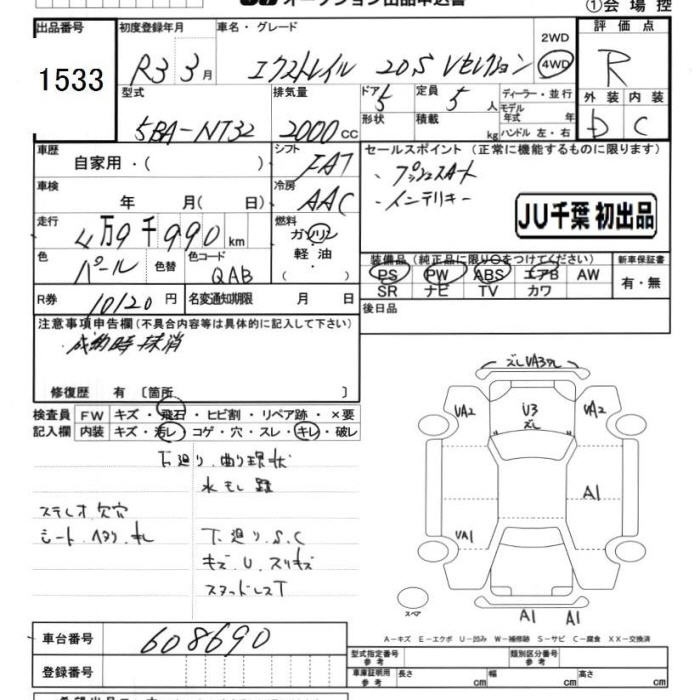 オークション出品申込書
①会場控
出品番号
1533
初度登録年月
R3 3月
車名・グレード
エクストレイル 20S Vセレクション
2WD
4WD
評価点
R
外装 内装
D C
型式
5BA-NT32
排気量
2000cc
ドア
5
形状
定員
5人
積載
kg
ディーラー・並行
モデル年式 年
ハンドル 左・右
車歴
自家用・( )
シフト
FAT
セールスポイント (正常に機能するものに限ります)
・プッシュスタート
・インテリキー
JU千葉 初出品
車検
年 月( 日)
冷房
AAC
走行
4万9千990km
燃料
ガソリン
軽油
・( )
色
パール
色替
色コード
QAB
装備品(純正品に限り○をつけてください)
PS PW ABS エアB AW
SR ナビ TV カワ
新車保証書
有・無
R券
10120円
名変通知期限 月 日
後日品
注意事項申告欄(不具合内容等は具体的に記入して下さい)
成約時抹消
修復歴 有〔箇所 〕
検査員記入欄
FW キズ・飛石・ヒビ割・リペア跡・×要
内装 キズ・汚レ・コゲ・穴・スレ・キレ・破レ
下廻り.曲り現状
ステレオ.欠穴
下廻り.S.C
キズ.U.スリキズ
スタッドレスT
ズレUA3ワレ
UA2
U3
ズレ
UA2
A1
UA1
スペア
A1 A1
A-キズ E-エクボ U-凹み W-補修跡 S-サビ C-腐食 XX-交換済
車台番号
608690
登録番号
型式指定番号
参考
類別区分番号
参考
車庫証明用
参考
長さ cm
幅 cm
高さ cm